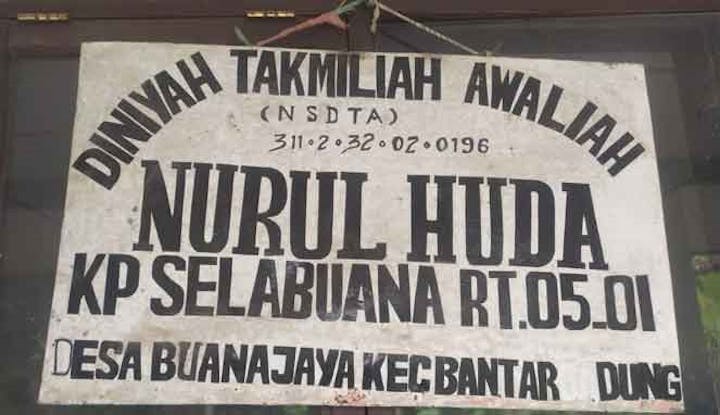 DINIYAH TAKMILIAH AWALIAH
(NSDTA)
311.2.32.02.0196
NURUL HUDA
KP SELABUANA RT.05_01
DESA BUANAJAYA KEC BANTAR DUNG